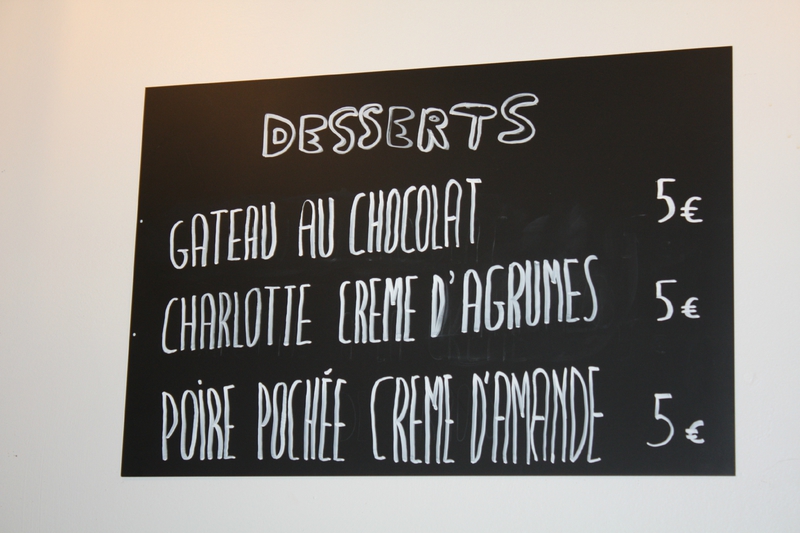 DESSERTS
GATEAU AU CHOCOLAT 5€
CHARLOTTE CREME D'AGRUMES 5€
POiRE POCHÉE CREME D'AMANDE 5€